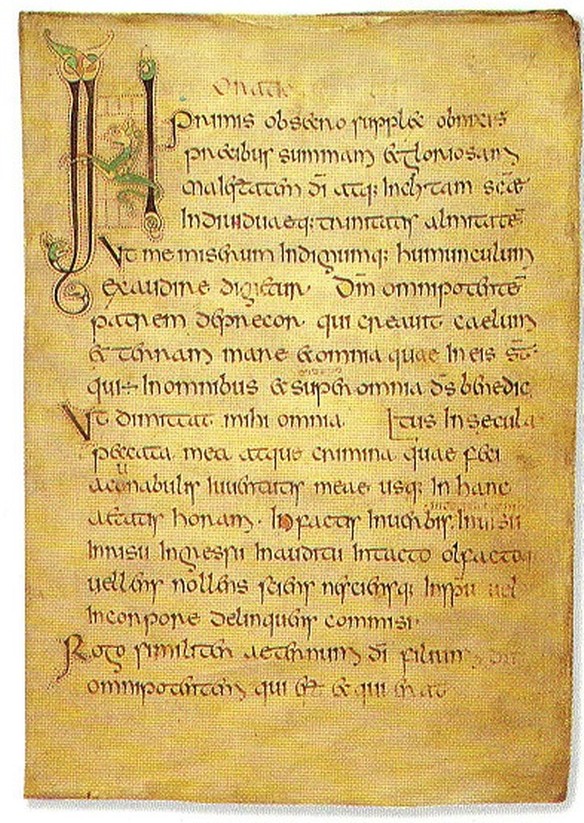 Oratio
IN primis obsecro supplex obnixis
precibus summam & gloriosam
maiestatem di̅ atq; Inclitam sc̅ae
Indiuiduaeq; trinitatis almitatē
Vt me miserum Indignumq; humunculum
exaudire dignetur. Dn̅m omnipotentē
patrem deprecor. qui creauit caelum
& terram mare & omnia quae In eis st̅.
qui ÷ In omnibus & super omnia ds̅ benedic
Vt dimittat mihi omnia. tus In secula
peccata mea atque crimina quae feci
acunabulis Iuuentutis meae usq; In hanc
aetatis horam. In factis In uerbis
In uisu In gressu In auditu In tacto olfactoq
uellens nollens sciens nesciensq; In sp̅u uel
In corpore delinquens commisi.
Rogo similiter aeternum di̅ filium
omnipotentem qui e̅st & qui erat